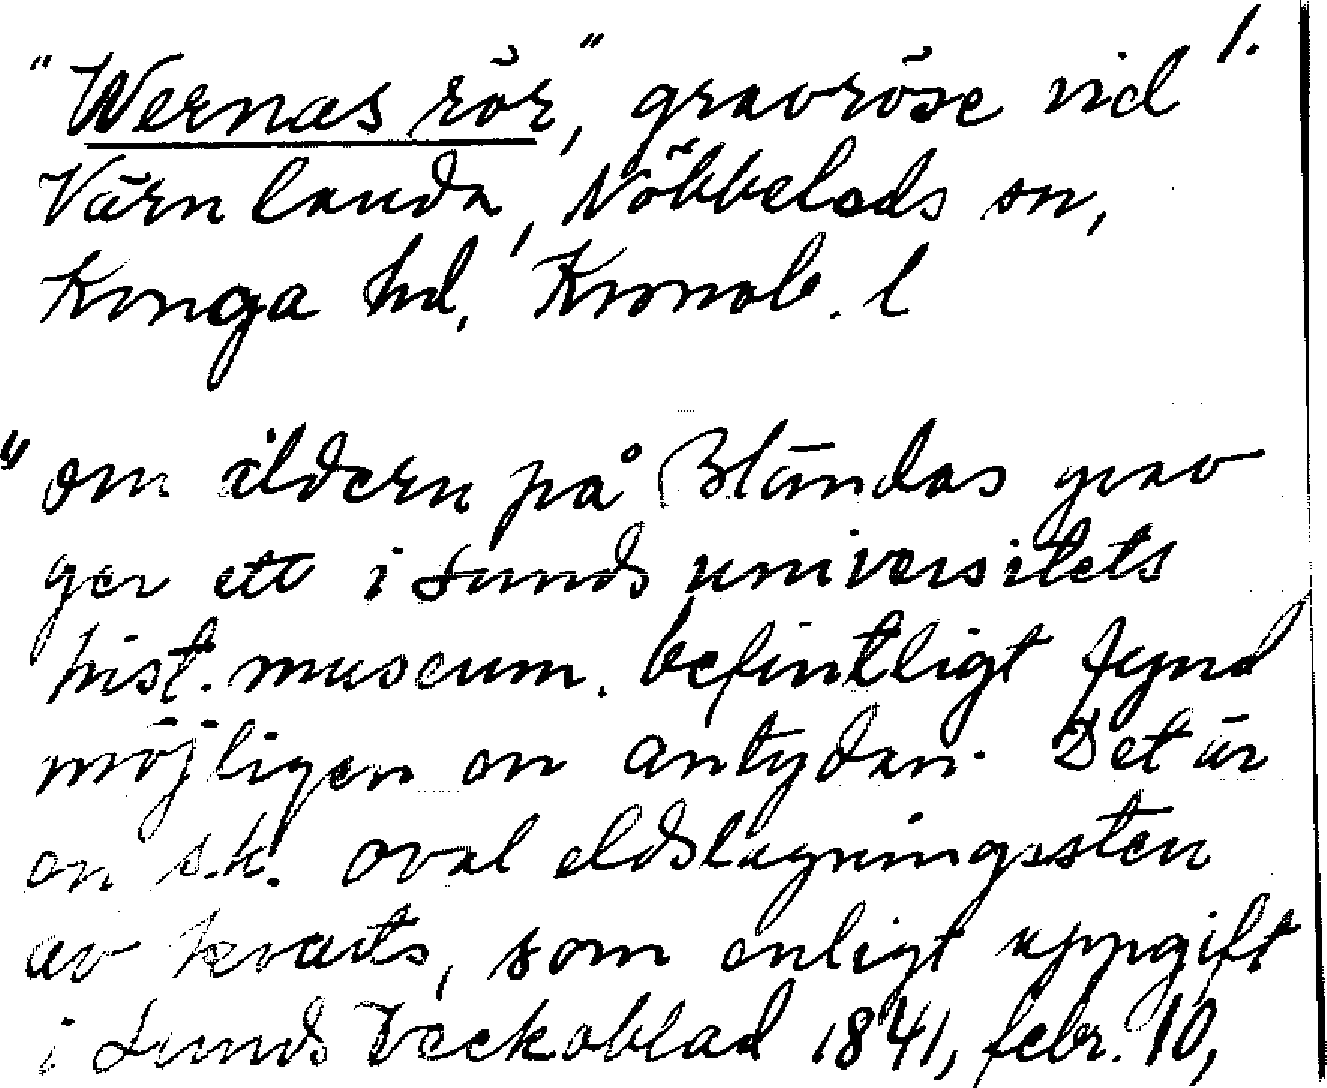 1.
"Wernas rör", gravröse vid
Värnlanda, Nöbbeleds sn,
Konga hd, Kronob. l
"om åldern på Bländas grav
ger ett i Lunds universitets
hist. museum. befintligt fynd
möjligen en antydan. Det är
en s.k. oval eldslagningssten
av kvarts, som enligt uppgift
i Lunds Veckoblad 1841, febr. 10,